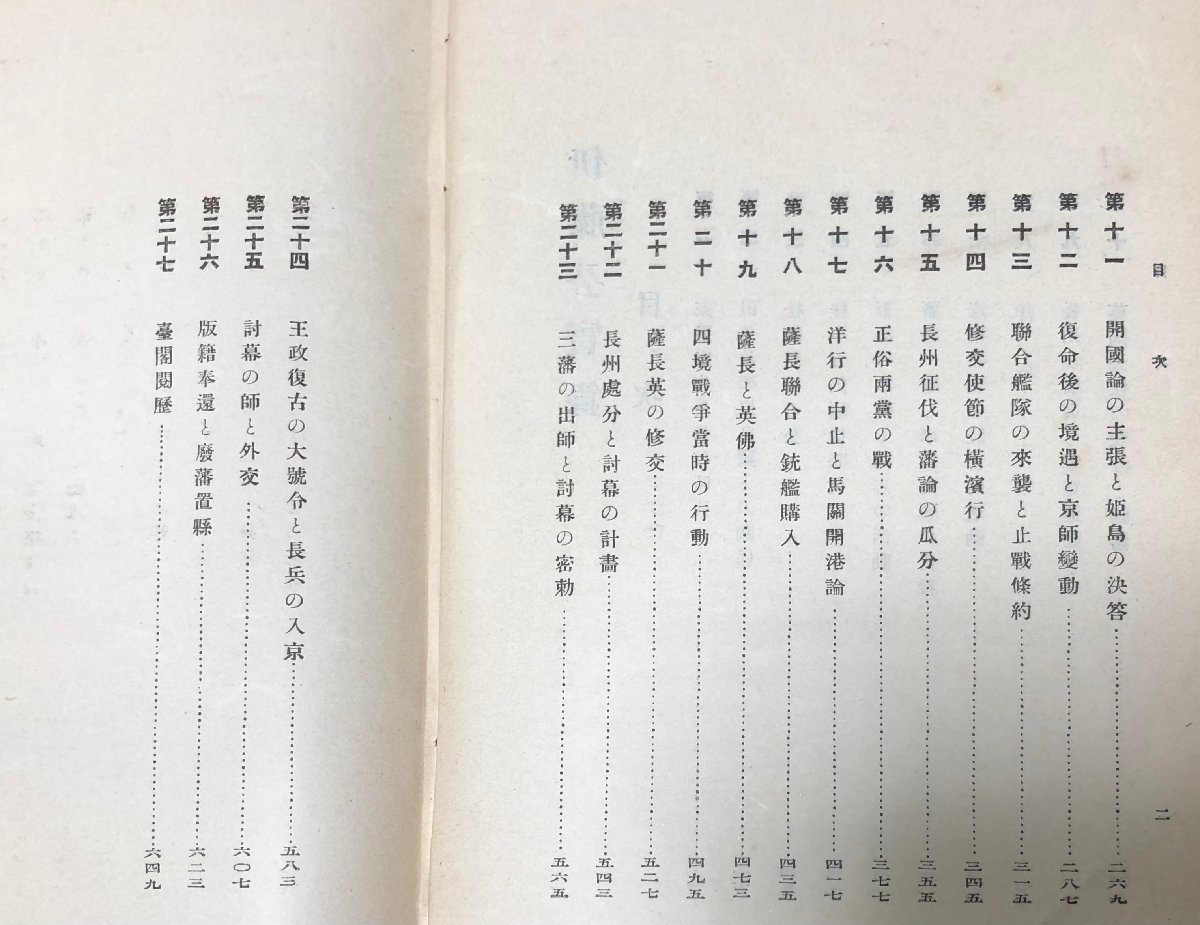 目次
第十一 開國論の主張と姫島の決答……二六九
第十二 復命後の境遇と京師變動……二八七
第十三 聯合艦隊の來襲と止戰條約……三一五
第十四 修交使節の橫濱行……三四五
第十五 長州征伐と藩論の瓜分……三五五
第十六 正俗兩黨の戰……三七七
第十七 洋行の中止と馬關開港論……四一七
第十八 薩長聯合と銃艦購入……四三五
第十九 薩長と英佛……四七三
第二十 四境戰爭當時の行動……四九五
第二十一 薩長英の修交……五二七
第二十二 長州處分と討幕の計畫……五四三
第二十三 三藩の出師と討幕の密勅……五六五
二
第二十四 王政復古の大號令と長兵の入京……五八三
第二十五 討幕の師と外交……六〇七
第二十六 版籍奉還と廢藩置縣……六二三
第二十七 臺閣閱歷……六四九